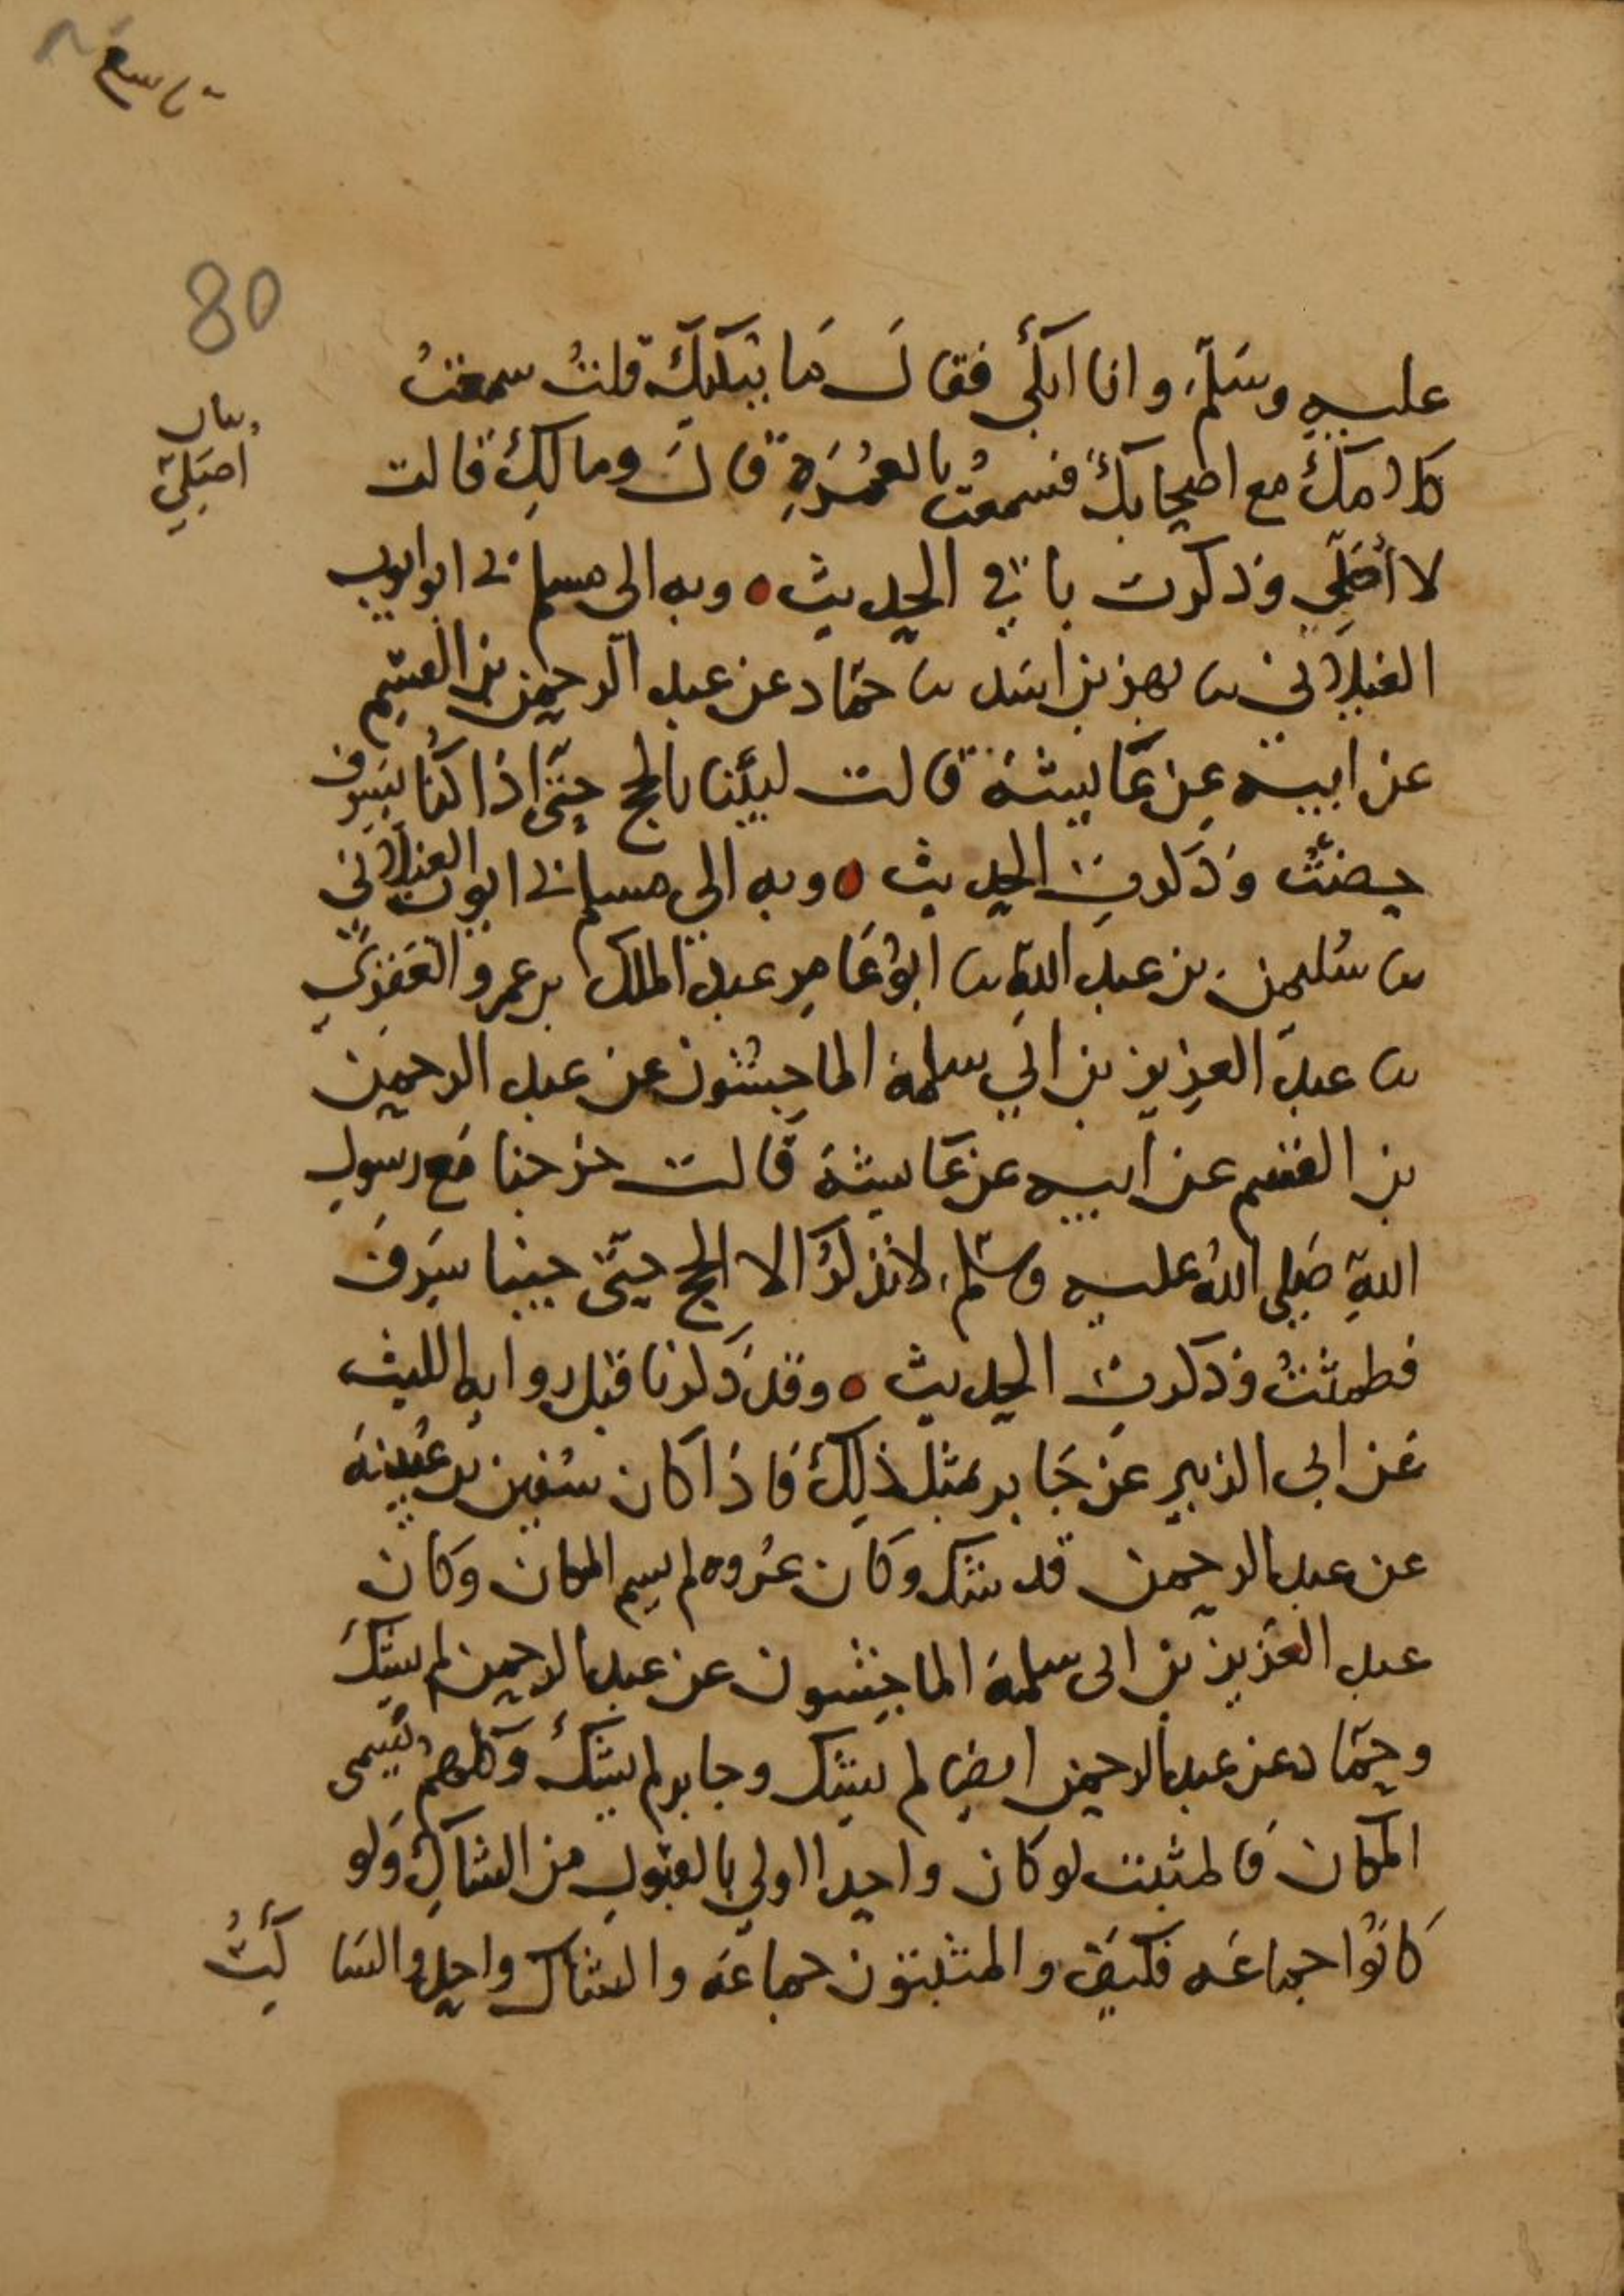 80
بيان
أصَلِّي
عليه وسَلَّم، وانا ابكي فقال مَا يبْكِيكِ قلتُ سمعْتُ
كلامكَ مع اصحابكَ فسمعْتُ بالعُمْرَةِ قالَ ومالَكِ قالت
لا أُصَلِّي وذكرت باقي الحديث ٥ وبه الى مسلم ني ابو ايوب
الغيلاني نا بهز بن اسَد نا حمّاد عن عبد الرحمن بن القسم
عن ابيه عن عَايشة قالت لبّيْنا بالحج حتّى اذا كُنا بسَرِف
حِضْتُ وَذَكرتِ الحديث ٥ وبه الى مسلم ني ابو ايوب الغيلاني
نا سُليمن بن عبد اللهِ نا ابو عَامِر عبد الملك بن عمرو العَقَدِي
نا عبد العزيز بن ابي سلمة الماجشُون عن عبد الرحمن
بن القسم عن ابيه عن عَايشة قالت خرجنا مَع رسولِ
اللهِ صَلى اللهُ عليه وسلّم، لا نذكُر الا الحج حتّى جينا سَرِفَ
فطمثْتُ وذكرت الحديث ٥ وقد ذَكرنا قبل رواية الليث
عَن ابى الزبير عَن جَابر بمثل ذلِكَ فاذا كان سُفين بن عُيينة
عن عبد الرحمن قد شك وكان عُروه لم يسم المكان وكان
عبد العَزيز بن ابى سلمة الماجشون عن عبد الرحمن لم يشكَّ
وحمّاد عن عبد الرحمن ايضا لم يشك وجابر لم يشكّ وكلهم يُسمى
المكان فالمثبت لو كان واحدا اولى بالقبولِ من الشاكِّ وَلو
كَانُوا جماعَه فكيفَ والمثبتون جماعَة والشاك واحد والسَاكِتُ